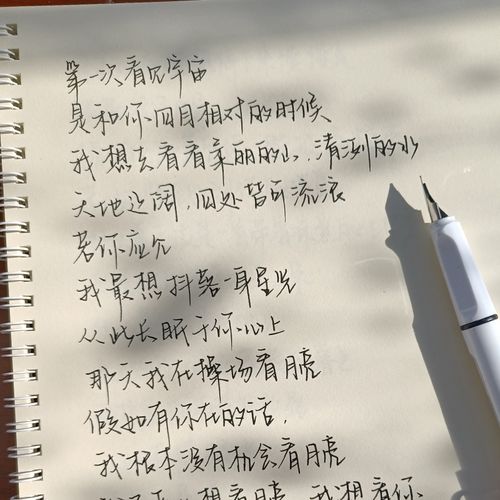 第一次看见宇宙
是和你四目相对的时候
我想去看看美丽的山,清澈的水
天地辽阔,四处皆可流浪
若你应允
我最想抖落一身星光
从此长眠于你心上
那天我在操场看月亮
假如有你在的话,
我根本没有机会看月亮
想看月亮,我想看你